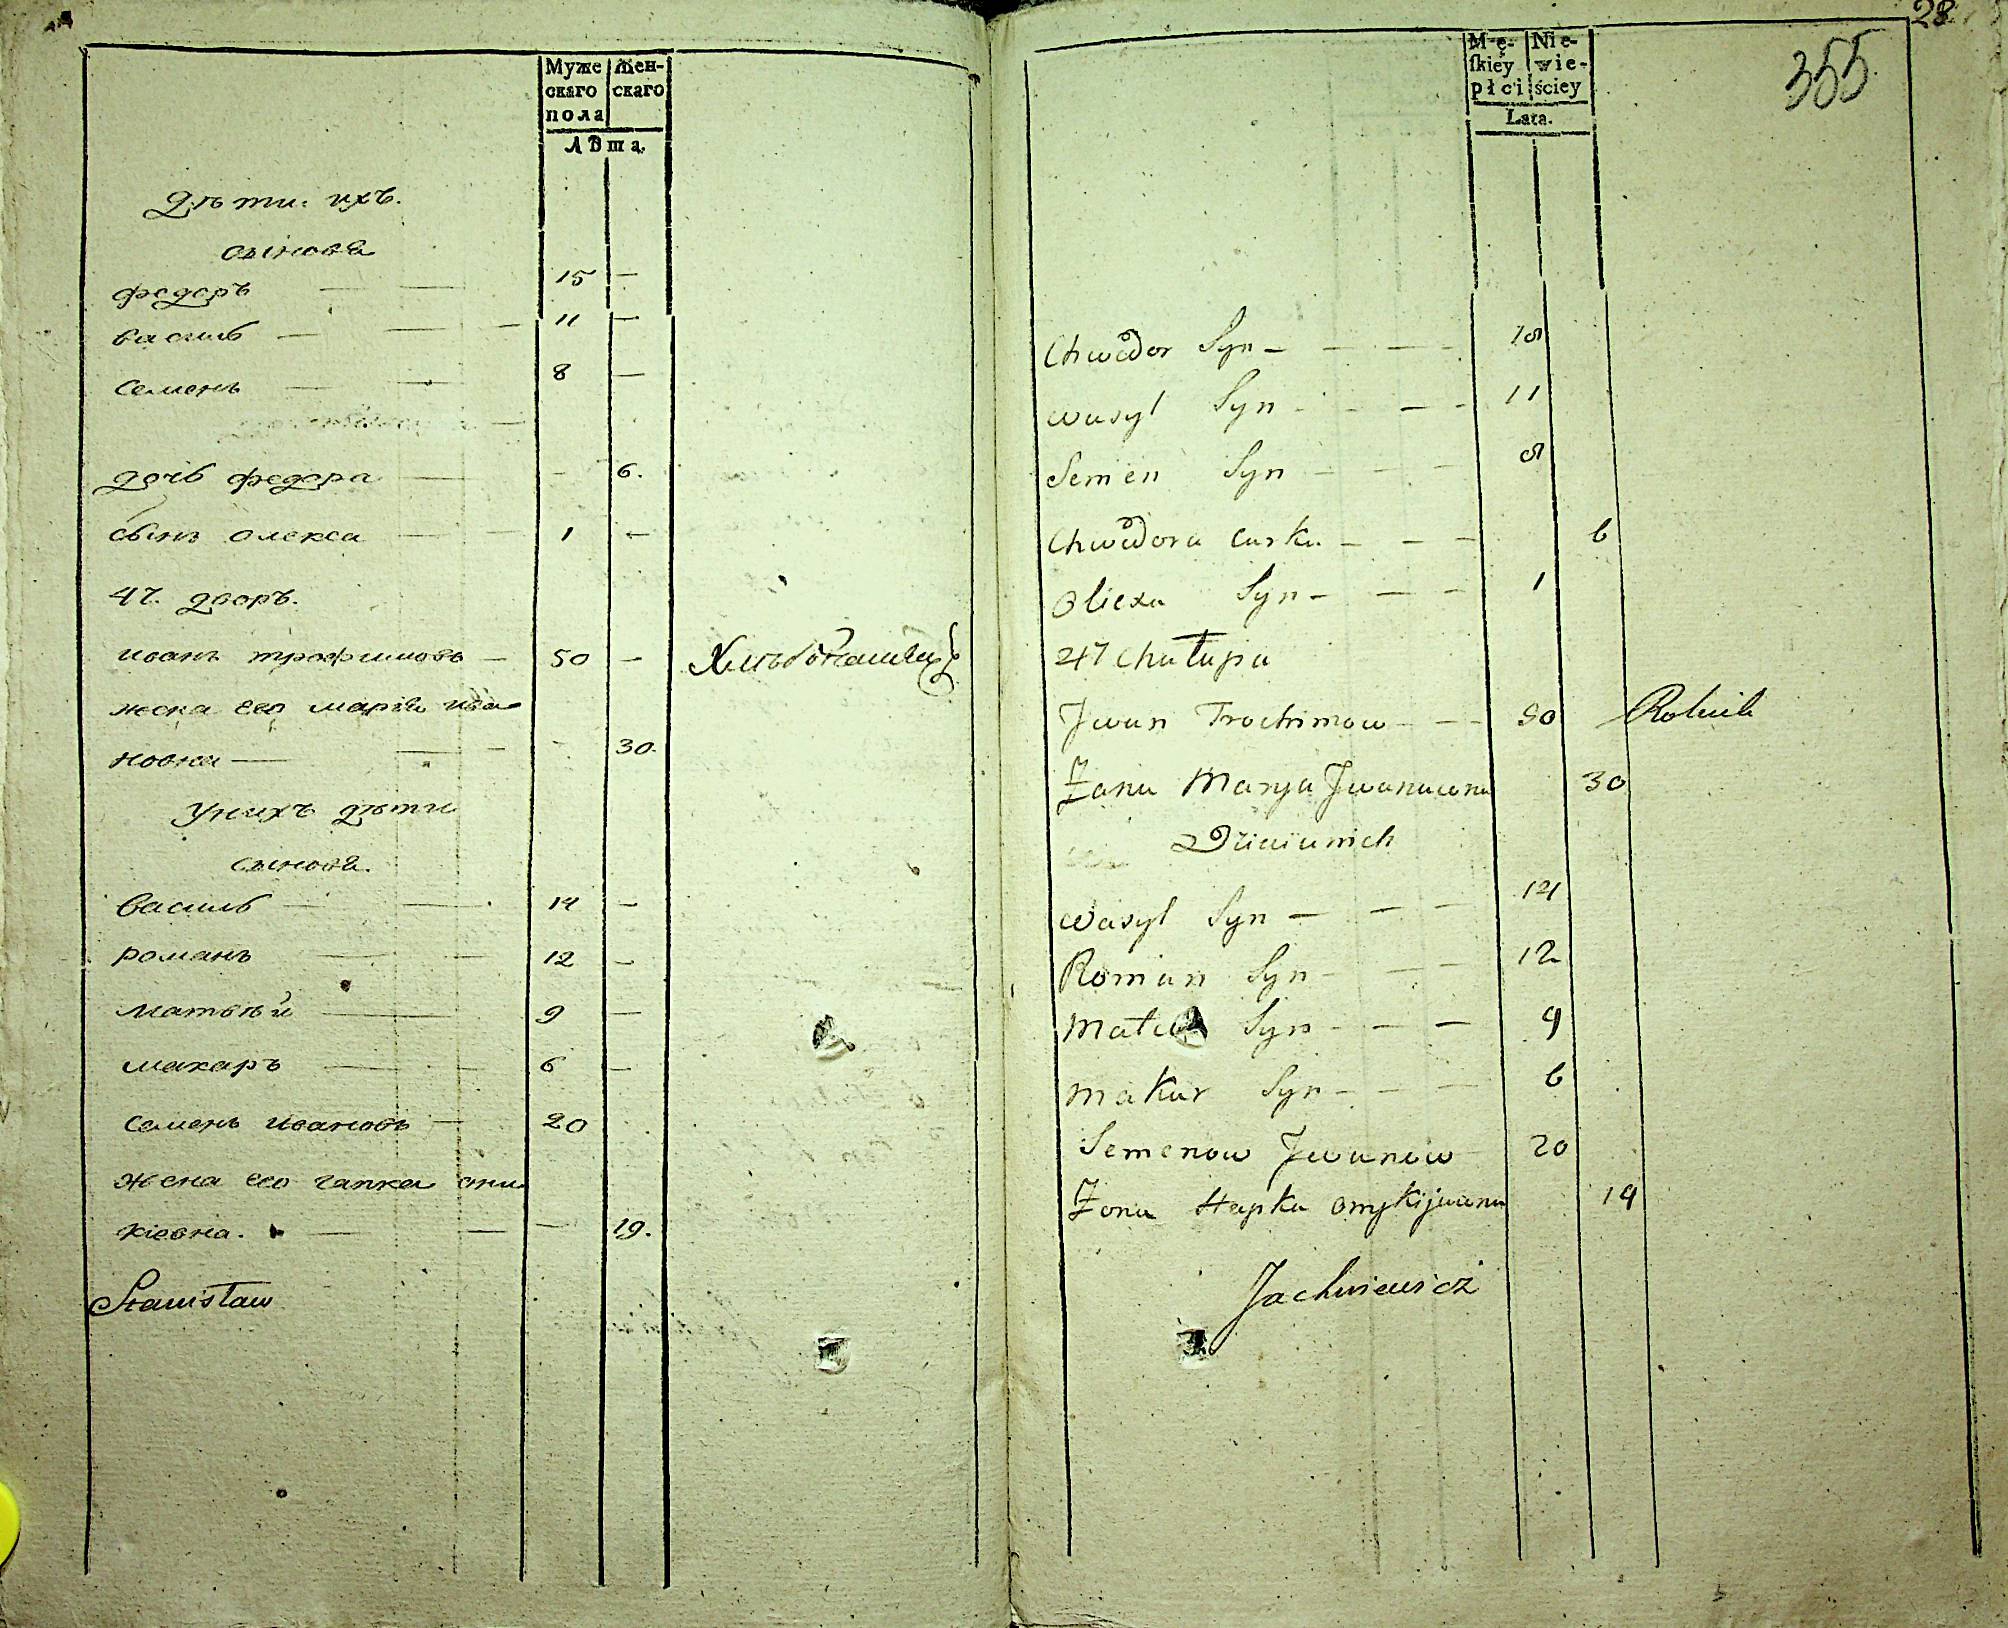 Муже Жен-
скаго скаго
пола
Лѣта.
Дѣти ихъ.
сынове
федоръ — — 15 —
василь — — — 11 —
Семенъ — — 8 —
дочь федора — - 6.
сынъ олекса — — 1 —
47. дворъ.
иванъ трофимовъ — 50 —
жена его марія ива
новна — — — - 30.
у нихъ дѣти
сынове.
Василь — — 14 —
романъ — — 12 —
матвѣй — — 9 —
макаръ — — 6 —
Семенъ ивановъ — 20
жена его гапка они
кіевна. — — — 19.
Stanisław
28
355
Mę- Nie-
skiey wie-
płci ściey
Lata.
Chwedor Syn — — — — 15
Wasyl Syn - - — - 11
Semen Syn - - - 8
Chwedora Curka — — — 6
Olexa Syn — — - 1
47 Chałupa
Jwan Trochimow — — 50 Rolnik
Żona Marya Jwanowna 30
Dzieci u nich
Wasyl Syn — — — 14
Roman Syn - — — 12
Syn - — — 9
Makar Syn - - — 6
Semenow Jwanow 20
Żona Hapka Onykijowna 19
Jachniewicz